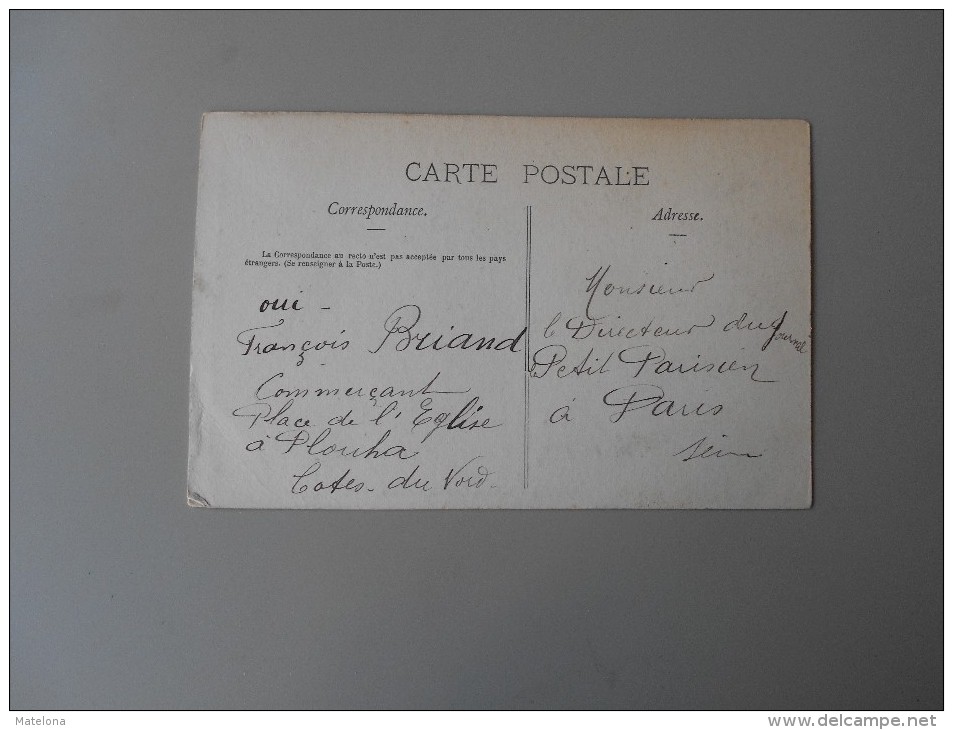 CARTE POSTALE
Correspondance.
La Correspondance au recto n'est pas acceptée par tous les pays
étrangers. (Se renseigner à la Poste.)
oui -
François Briand
Commerçant
Place de l'Eglise
à Plouha
Cotes-du Nord-
Adresse.
Monsieur
le Directeur du Journal
le Petit Parisien
à Paris
Seine
Matelona
www.delcampe.net